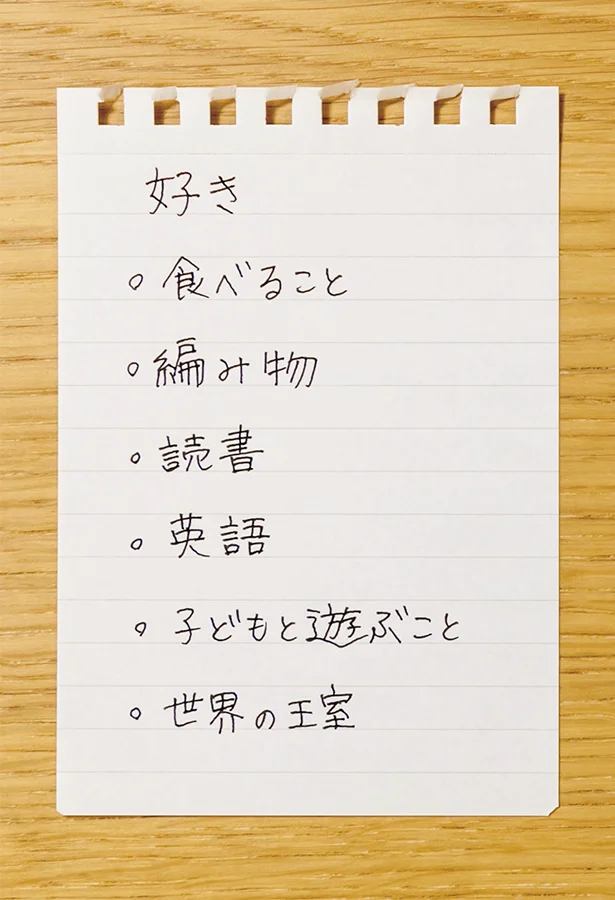 好き
○ 食べること
○ 編み物
○ 読書
○ 英語
○ 子どもと遊ぶこと
○ 世界の王室